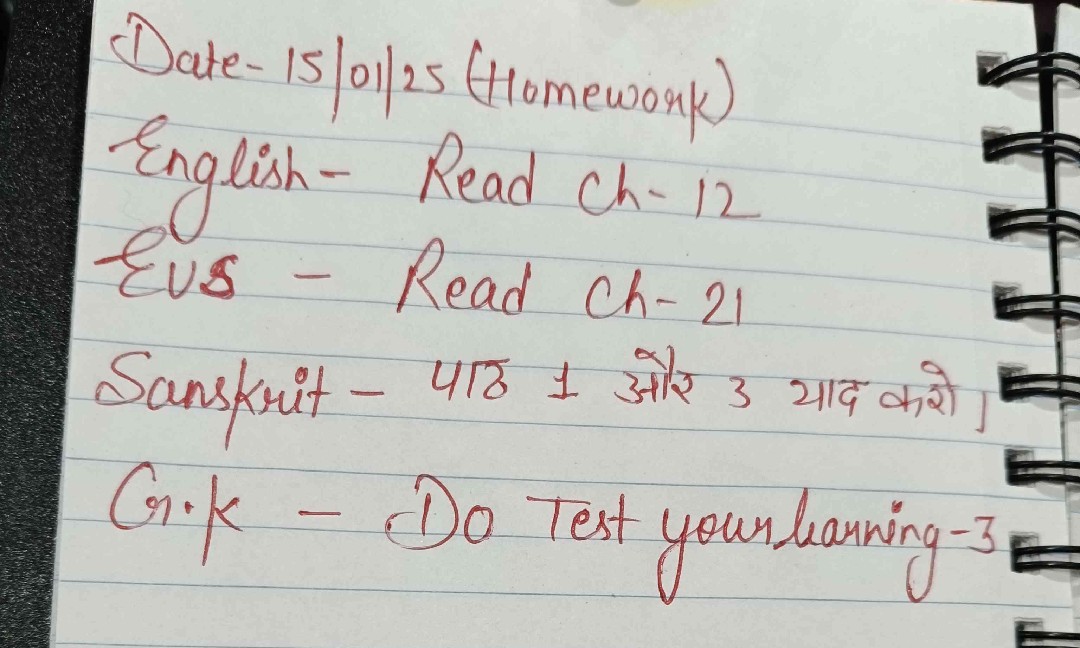 Date- 15/01/25 (Homework)
English- Read Ch- 12
EVS - Read Ch- 21
Sanskrit- पाठ 1 और 3 याद करो।
G.K - Do Test your learning-3